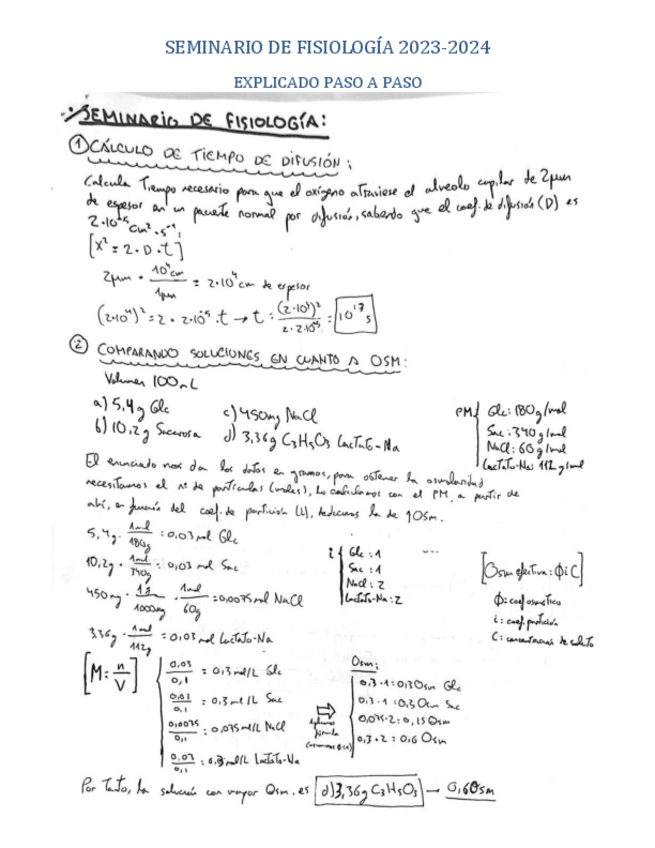 SEMINARIO DE FISIOLOGÍA 2023-2024
EXPLICADO PASO A PASO
SEMINARIO DE FISIOLOGÍA:
① CÁLCULO DE TIEMPO DE DIFUSIÓN:
Calcula Tiempo necesario para que el oxígeno atraviese el alveolo capilar de 2μm
de espesor en un paciente normal por difusión, sabiendo que el coef. de difusión (D) es
2·10⁻⁵ cm²·s⁻¹:
[x² = 2·D·t]
2μm · 10⁴cm / 1μm = 2·10⁴cm de espesor
(2·10⁴)² = 2 · 2·10⁻⁵ · t → t = (2·10⁴)² / 2·2·10⁻⁵ = 10¹³ s
② COMPARANDO SOLUCIONES EN CUANTO A OSM:
Volumen 100mL
a) 5,4g Glc c) 450mg NaCl PM Glc: 180g/mol
b) 10,2g Sacarosa d) 3,36g C3H5O3 Lactato-Na Sac: 340g/mol
NaCl: 60g/mol
Lactato-Na: 112g/mol
El enunciado nos da los datos en gramos, para obtener la osmolaridad
necesitamos el nº de partículas (moles), lo calculamos con el PM, a partir de
ahí, en función del coef. de partición (i), deducimos la de ↑Osm.
5,4g · 1mol / 180g = 0,03mol Glc
10,2g · 1mol / 340g = 0,03 mol Sac
450mg · 1g / 1000mg · 1mol / 60g = 0,0075mol NaCl
3,36g · 1mol / 112g = 0,03mol Lactato-Na
i Glc: 1 ...
Sac: 1
NaCl: 2
Lactato-Na: 2
[Osm efectiva: ϕ i C]
ϕ: coef osmótico
i: coef. partición
C: concentración de soluto
[M: n/V]
0,03 / 0,1 = 0,3mol/L Glc
0,03 / 0,1 = 0,3mol/L Sac
0,0075 / 0,1 = 0,075mol/L NaCl
0,03 / 0,1 = 0,3mol/L Lactato-Na
⇒
fórmula
Osm:
0,3·1 = 0,3 Osm Glc
0,3·1 = 0,3 Osm Sac
0,075·2 = 0,15 Osm
0,3·2 = 0,6 Osm
Por tanto, la solución con mayor Osm. es d) 3,36g C3H5O3 → 0,6Osm